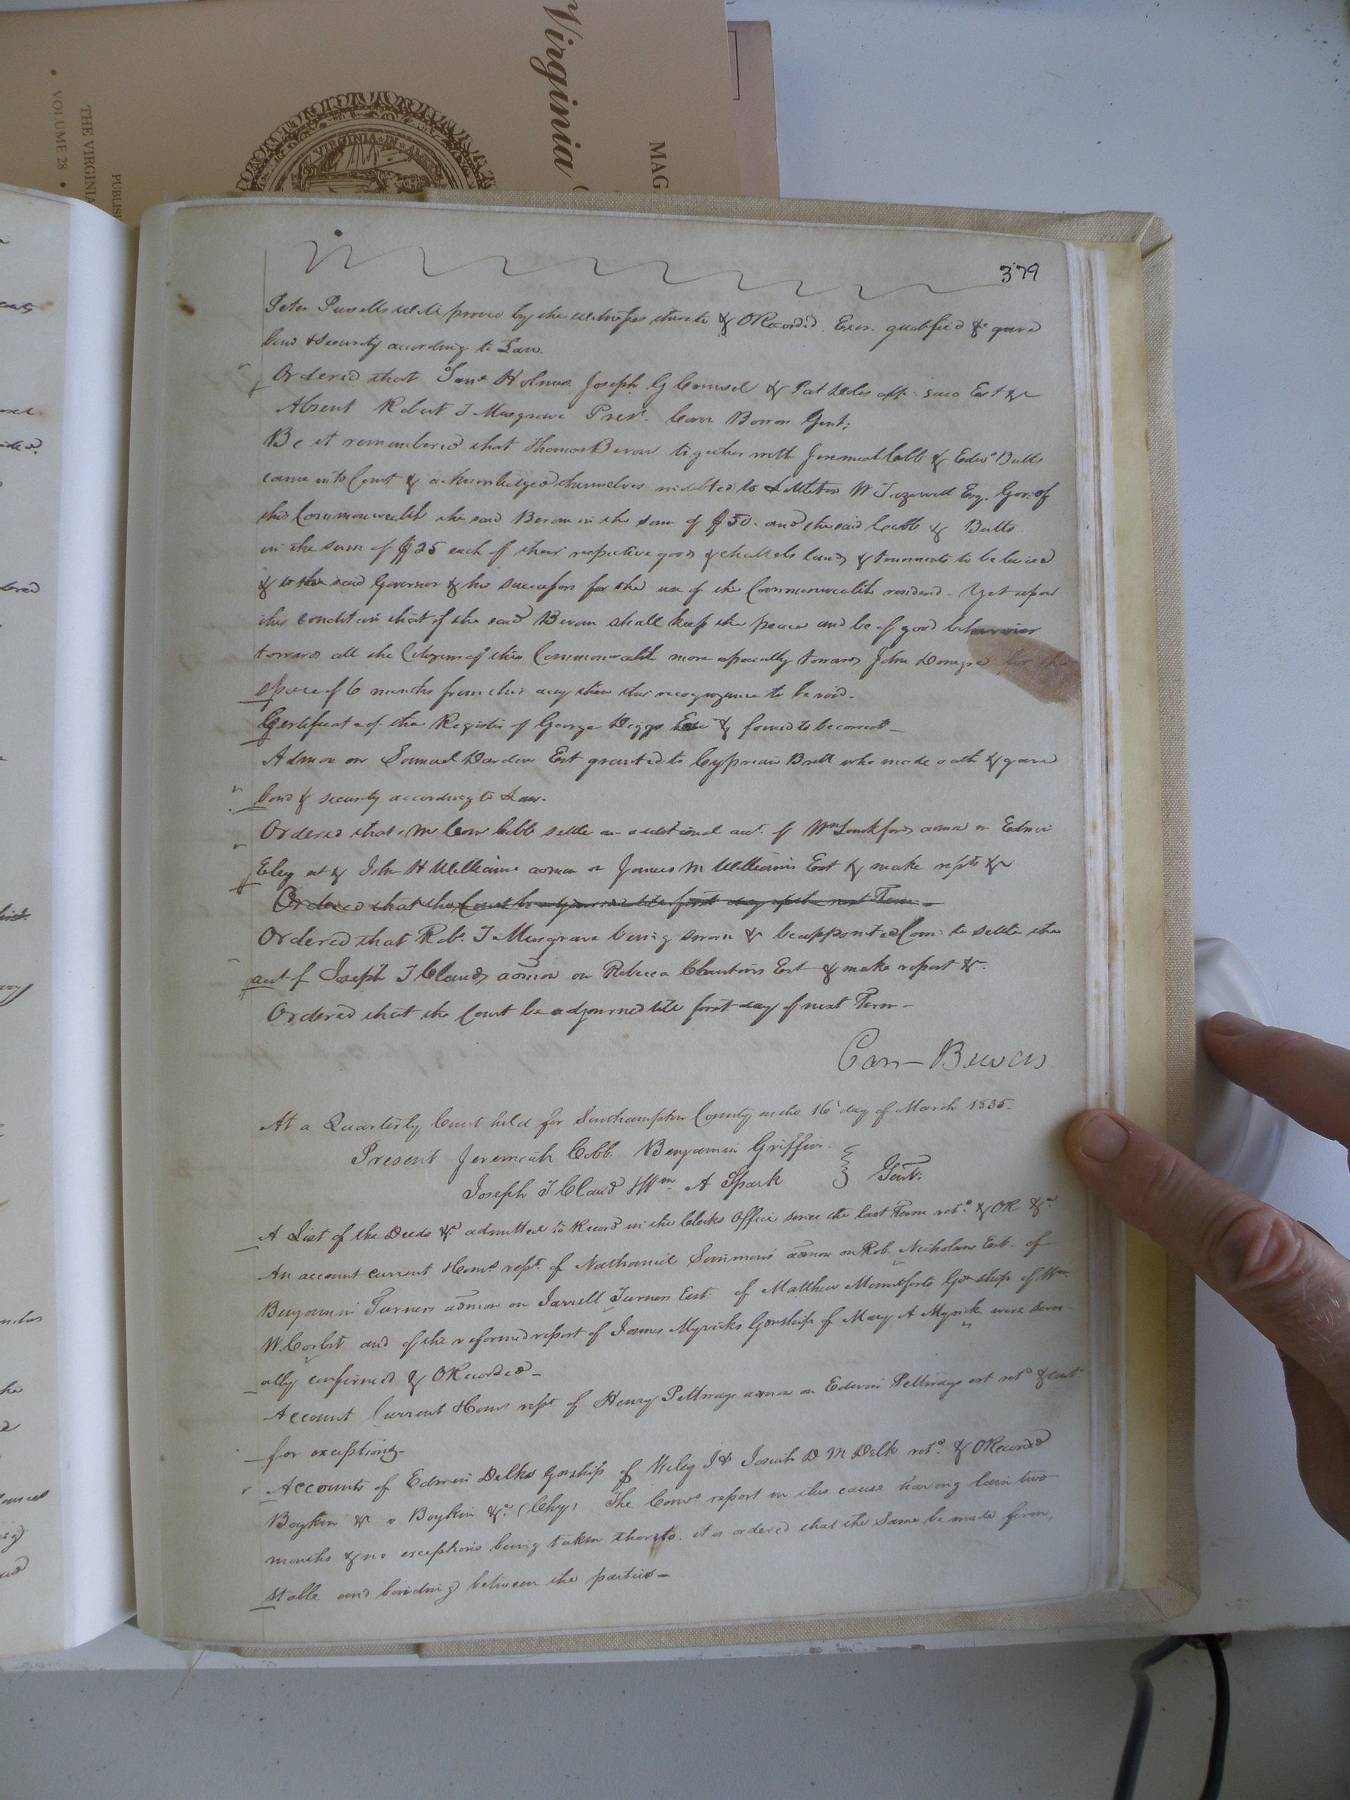 Virginia
MAG
THE VIRGINIA
PUBLIS
• VOLUME 28 •
VIRGINIA
379
Peter Pursells Will proven by the witnesses thereto & ORecorded. Exor. qualified & gave
bond & security according to Law.
Ordered that Joseph G & Pat
Absent Robert T Musgrave Prest. Carr Bowers Gent:
Be it remembered that Thomas Bevan together with Jeremiah Cobb & Edwd Butts
came into Court & acknowledged themselves indebted to Littleton W Tazewell Esq. Gov: of
this Commonwealth the said Bevan in the sum of $50. and the said Cobb & Butts
in the sum of $25 each of their respective goods & chattels lands & tenements to be levied
& to the said Governor & his successors for the use of the Commonwealth rendered - Yet upon
this condition that if the said Bevan shall keep the peace and be of good behaviour
towards all the Citizens of this Commonwealth more especially towards John for the
space of 6 months from this day then this recognizance to be void.
Certificate of the Register of George & found to be correct -
Admon on Samuel Darden Est granted to Cyprian Brett who made oath & gave
bond & security according to Law.
Ordered that settle an additional act. of Wm Lankfords admon on Edwin
Eley est & John H Williams admon on James M Williams Est & make repts &c
Ordered that the Court be adjourned till first day of the next Term -
Ordered that Rob. T Musgrave being sworn & be appointed Com: to settle the
act of Joseph T Clauds admon on Rebecca Est & make report &c.
Ordered that the Court be adjourned till first day of next Term -
Carr Bowers
At a Quarterly Court held for Southampton County on the 16 day of March 1835.
Present Jeremiah Cobb Benjamin Griffin
Joseph T Claud Wm A Spark Gent.
A List of the Deeds &c admitted to Record in the Clerks Office since the last Term retd. & OR &c
An account current Coms rept. of Nathaniel Simmons admon on Rob. Nicholson Est. of
Benjamin Turners admon on Jarrell Turner Est. of Matthew Gdnship of Wm.
W Corbit and of the reformed report of James Myricks Gdnship of Mary A Myrick were sever-
ally confirmed & ORecorded -
Account Current Coms rept of Henry admon on Edwin est retd & contd
for exceptions.
Accounts of Edwin Delks Gdnship of Wiley J & Josiah D M Delk retd. & ORecorded
Boykin &c v Boykin &c (Chy) The Coms report in this cause having lain two
months & no exceptions being taken thereto. it is ordered that the same be made firm,
stable and binding between the parties -